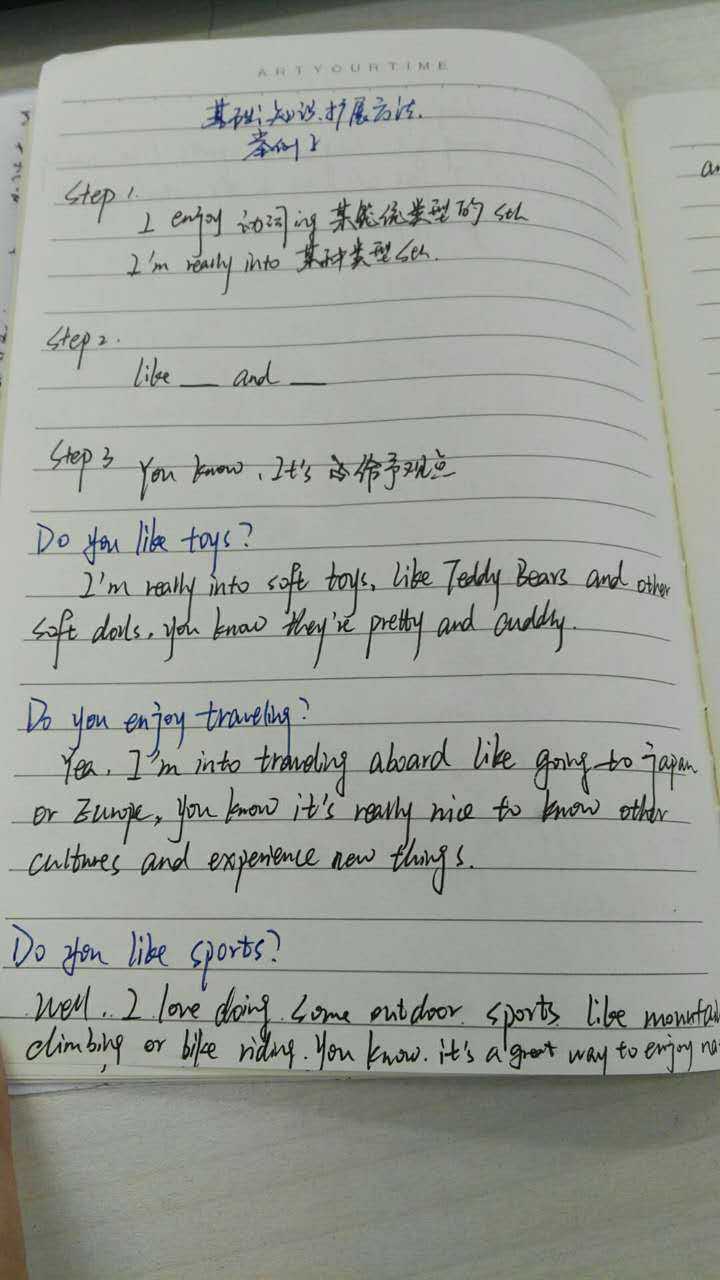 ARTYOURTIME
基础知识扩展方法.
举例1
Step 1.
I enjoy 动词ing 某笼统类型的 sth
I'm really into 某种类型 sth.
Step 2.
like __ and __
Step 3 You know, It's 给予观点
Do you like toys?
I'm really into soft toys, like Teddy Bears and other
soft dolls, you know they're pretty and cuddly.
Do you enjoy traveling?
Yea, I'm into traveling aboard like going to japan
or Europe, you know it's really nice to know other
cultures and experience new things.
Do you like sports?
Well, I love doing some outdoor sports like mountai
climbing or bike riding. You know. it's a great way to enjoy na